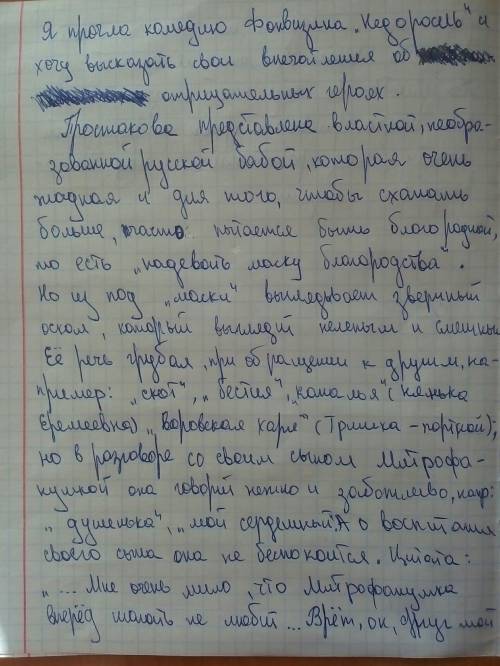 Я прочла комедию Фонвизина „Недоросль" и
хочу высказать свои впечатления об
отрицательных героях.
Простакова представлена властной, необра-
зованной русской бабой, которая очень
жадная и для того, чтобы схапать
больше, часто пытается быть благородной,
то есть „надевать маску благородства".
Но из под „маски" выглядывает звериный
оскал, который выглядит нелепым и смешным.
Её речь грубая, при обращении к другим, на-
пример: „скот", „бестия", „каналья" (нянька
Еремеевна) „Воровская харя" (Тришка - портной);
но в разговоре со своим сыном Митрофа-
нушкой она говорит нежно и заботливо, напр:
„душенька", „мой сердешный". А о воспитании
своего сына она не беспокоится. Цитата:
„... Мне очень мило, что Митрофанушка
вперёд шагать не любит ... Врёт, он, друг мой